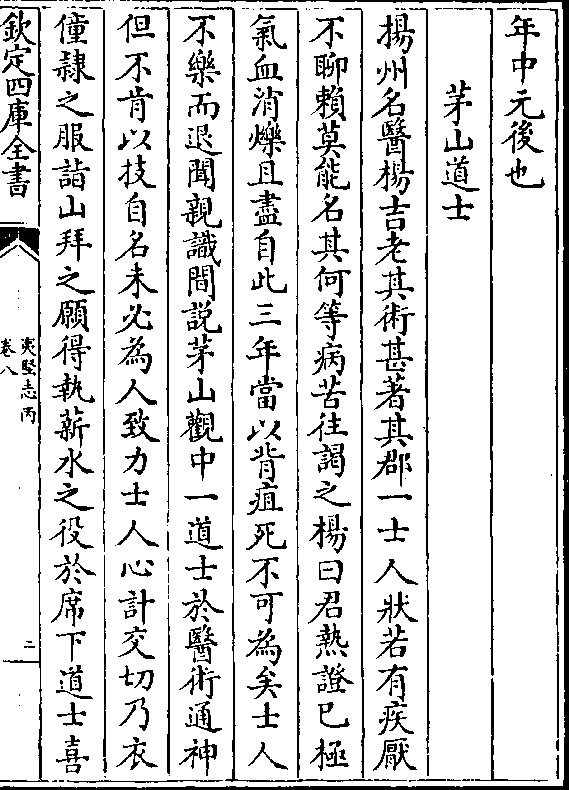 年中元後也
茅山道士
揚州名醫楊吉老其術甚著其郡一士人狀若有疾厭
不聊賴莫能名其何等病苦往謁之楊曰君熱證已極
氣血消爍且盡自此三年當以背疽死不可為矣士人
不樂而退聞親識間説茅山觀中一道士於醫術通神
但不肯以技自名未必為人致力士人心計交切乃衣
僮隷之服詣山拜之願得執薪水之役於席下道士喜
欽定四庫全書
夷堅志丙
卷八
二